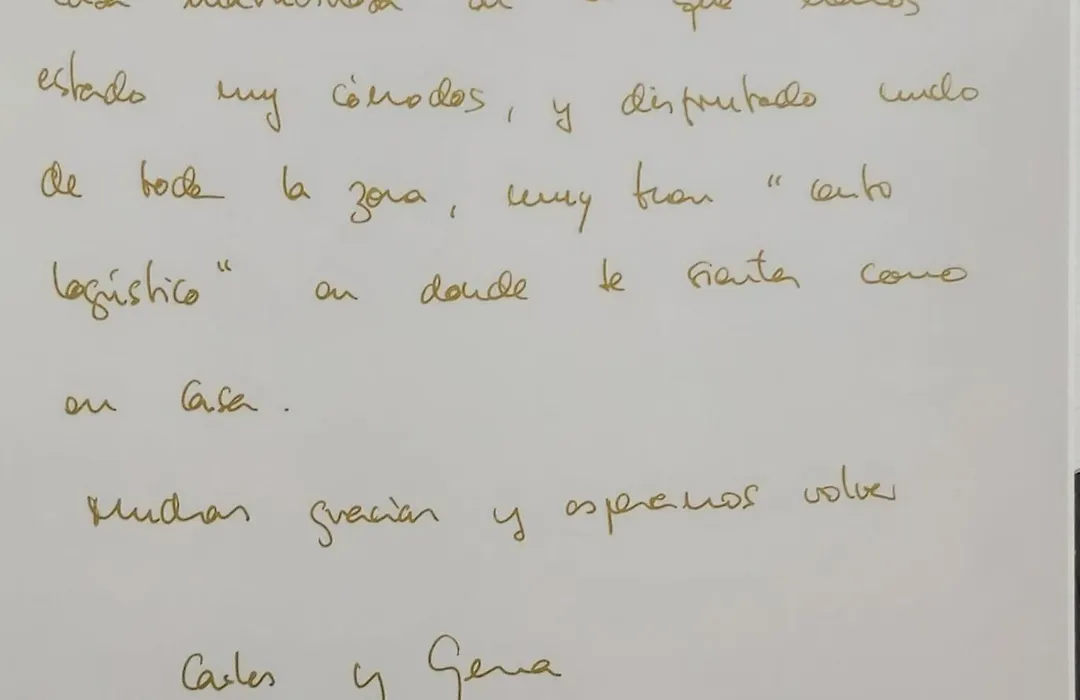 casa maravillosa en la que hemos
estado muy cómodos, y disfrutado mucho
de toda la zona, muy buen "centro
logístico" en donde te sientes como
en casa.
Muchas gracias y esperamos volver
Carlos y Gema